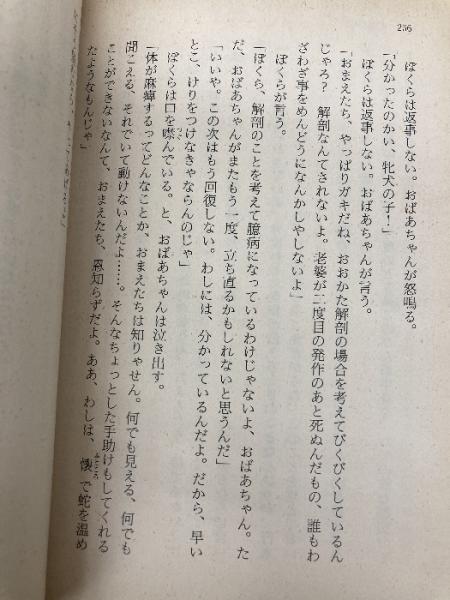 256
ぼくらは返事しない。おばあちゃんが怒鳴る。
「分かったのかい、牝犬の子！」
ぼくらは返事しない。おばあちゃんが言う。
「おまえたち、やっぱりガキだね、おおかた解剖の場合を考えてびくびくしているん
じゃろ？　解剖なんてされないよ。老婆が二度目の発作のあと死ぬんだもの、誰もわ
ざわざ事をめんどうになんかしやしないよ」
ぼくらが言う。
「ぼくら、解剖のことを考えて臆病になっているわけじゃないよ、おばあちゃん。た
だ、おばあちゃんがまたもう一度、立ち直るかもしれないと思うんだ」
「いいや。この次はもう回復しない。わしには、分かっているんだよ。だから、早い
とこ、けりをつけなきゃならんのじゃ」
ぼくらは口を噤んでいる。と、おばあちゃんは泣き出す。
「体が麻痺するってどんなことか、おまえたちは知りゃせん。何でも見える、何でも
聞こえる、それでいて動けないんだよ……。そんなちょっとした手助けもしてくれる
ことができないなんて、おまえたち、恩知らずだよ。ああ、わしは、懐で蛇を温め
たようなもんじゃ」